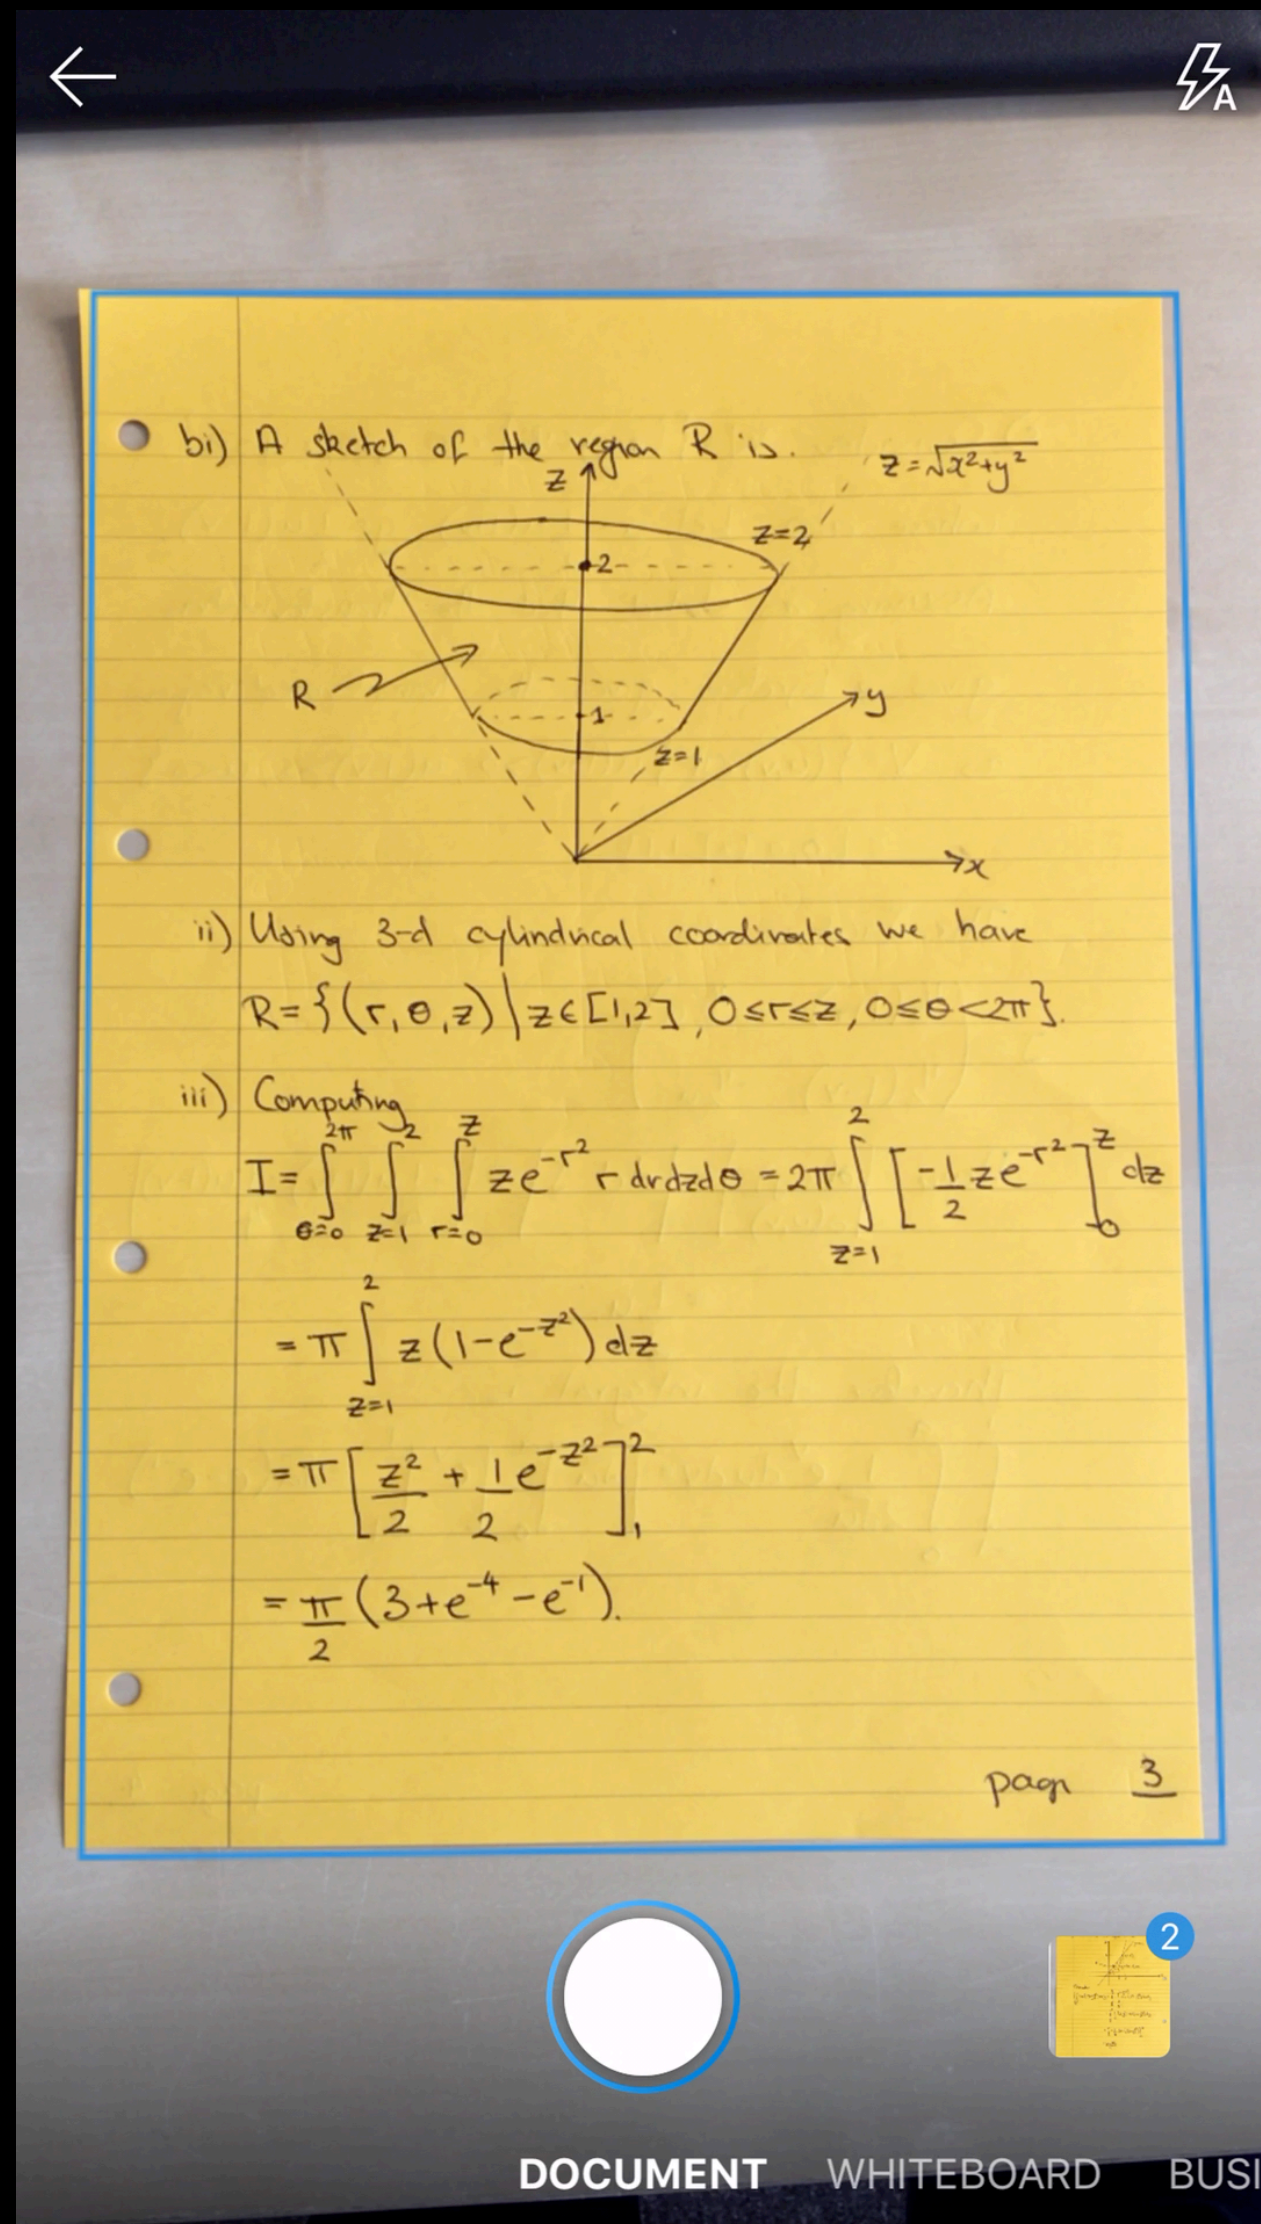 A
bi) A sketch of the region R is.
z = √x²+y²
z
z=2
2
R
1
y
z=1
x
ii) Using 3-d cylindrical coordinates we have
R={(r,θ,z)|z∈[1,2], 0≤r≤z, 0≤θ<2π}.
iii) Computing
I = ∫_{θ=0}^{2π} ∫_{z=1}^{2} ∫_{r=0}^{z} ze^{-r²} r drdzdθ = 2π ∫_{z=1}^{2} [-1/2 ze^{-r²}]_0^z dz
= π ∫_{z=1}^{2} z(1-e^{-z²}) dz
= π [z²/2 + 1/2 e^{-z²}]_1^2
= π/2 (3+e^{-4}-e^{-1}).
page 3
2
DOCUMENT WHITEBOARD BUSI